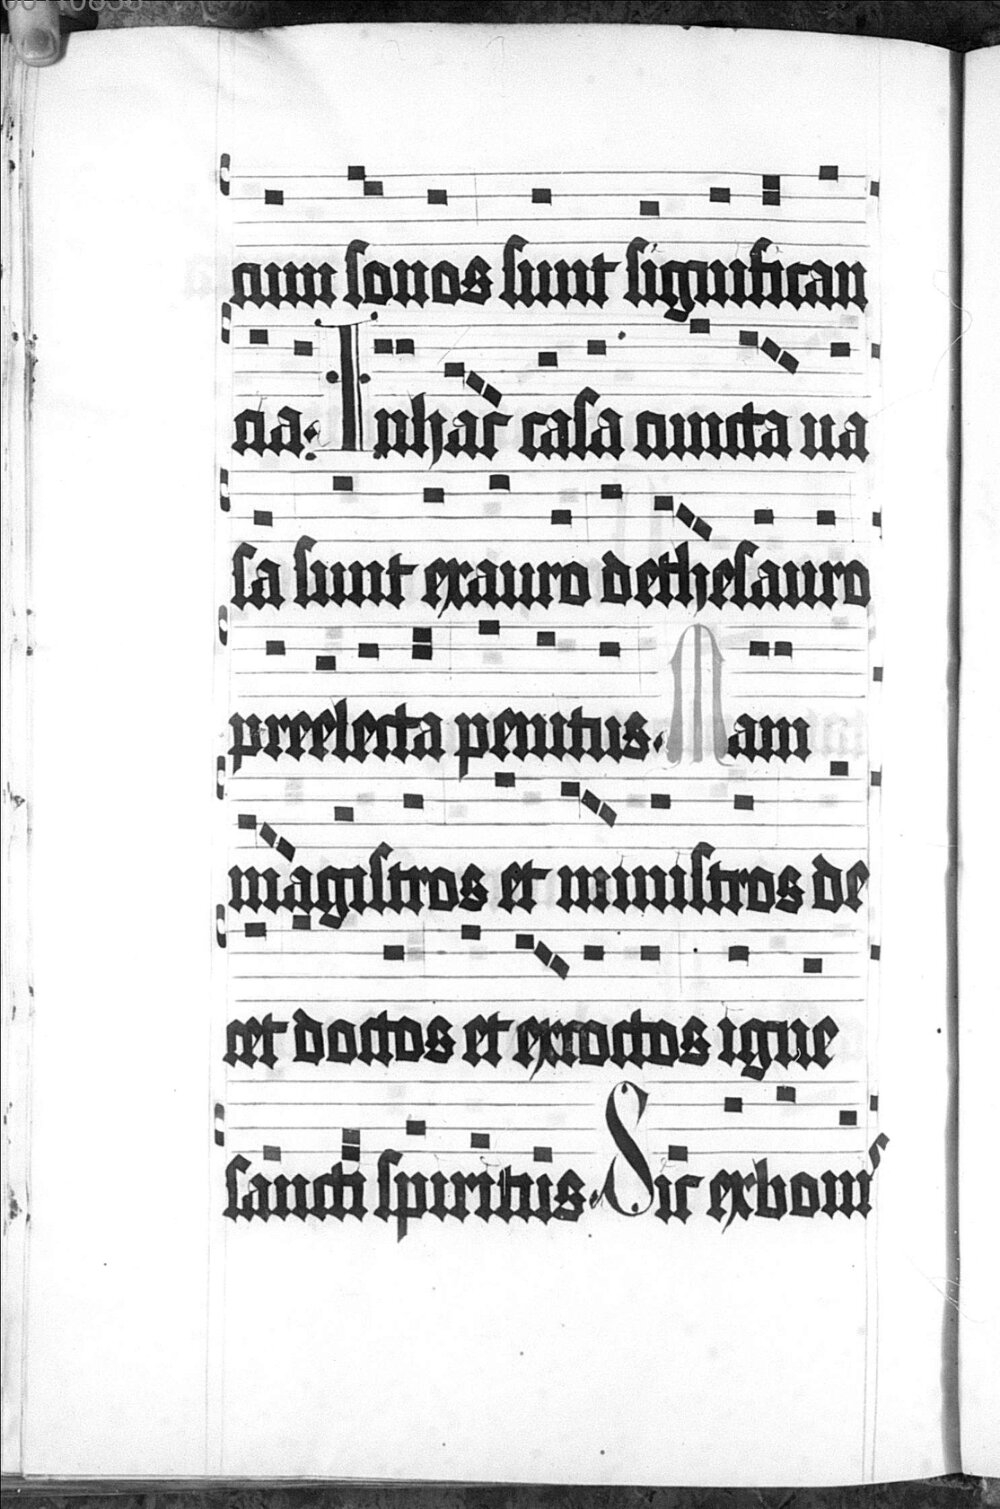 cium sonos sunt significan
cia. In hac casa cuncta ua
sa sunt ex auro de thesauro
preelecta penitus. Nam
magistros et ministros de
cet doctos et excoctos igne
sancti spiritus. Sic ex bonis